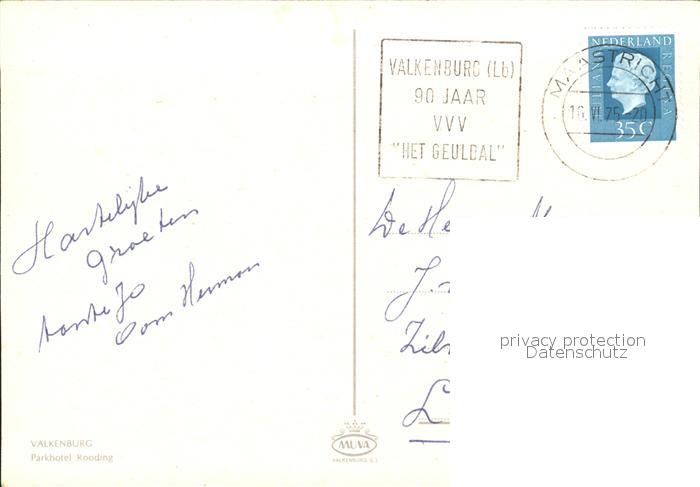 VALKENBURG (Lb)
90 JAAR
VVV
"HET GEULDAL"
NEDERLAND
JULIANA REGINA
MAASTRICHT
16.VI.75-20
35 C
Hartelijke
groeten
tante Jo
Oom Herman
De He
J.
L
privacy protection
Datenschutz
VALKENBURG
Parkhotel Rooding
MUVA
VALKENBURG